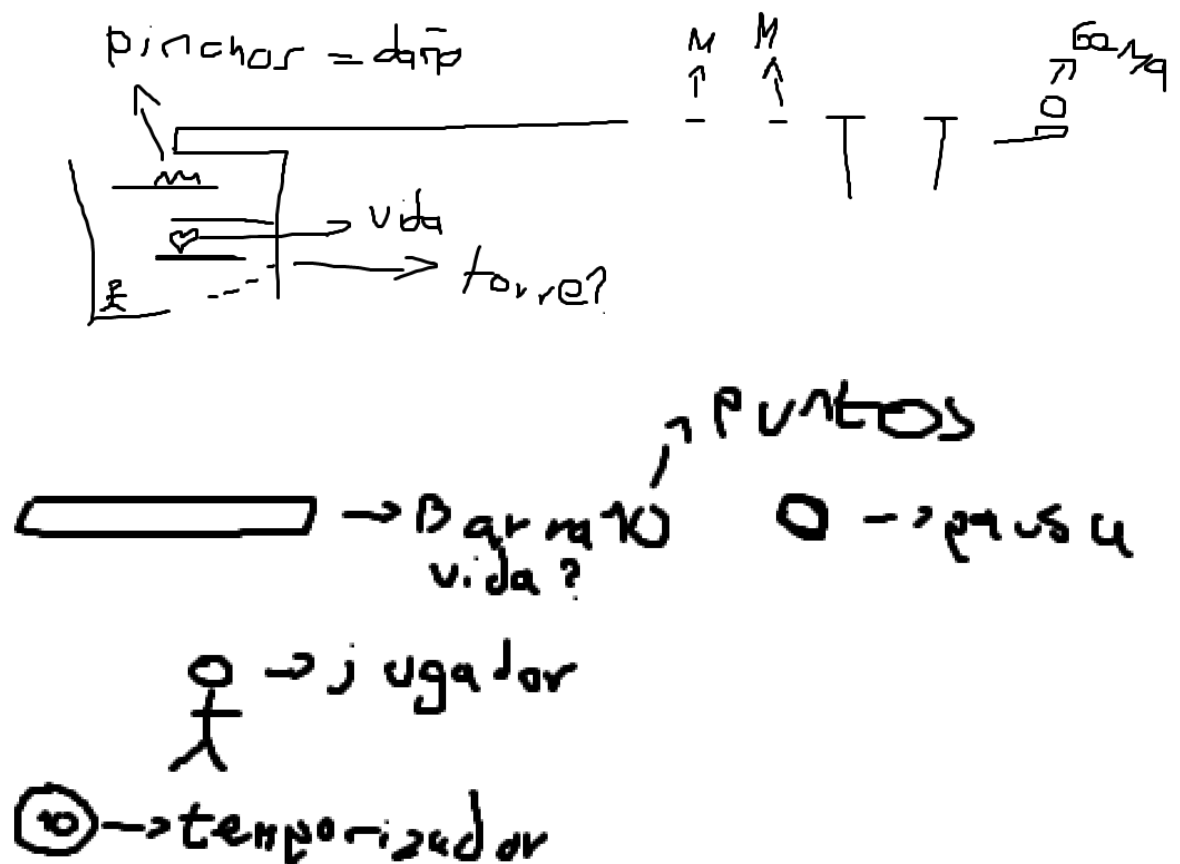 pinchos = daño
M M
Gana
vida
torre?
Puntos
Barra 10
vida?
pausa
jugador
10
temporizador